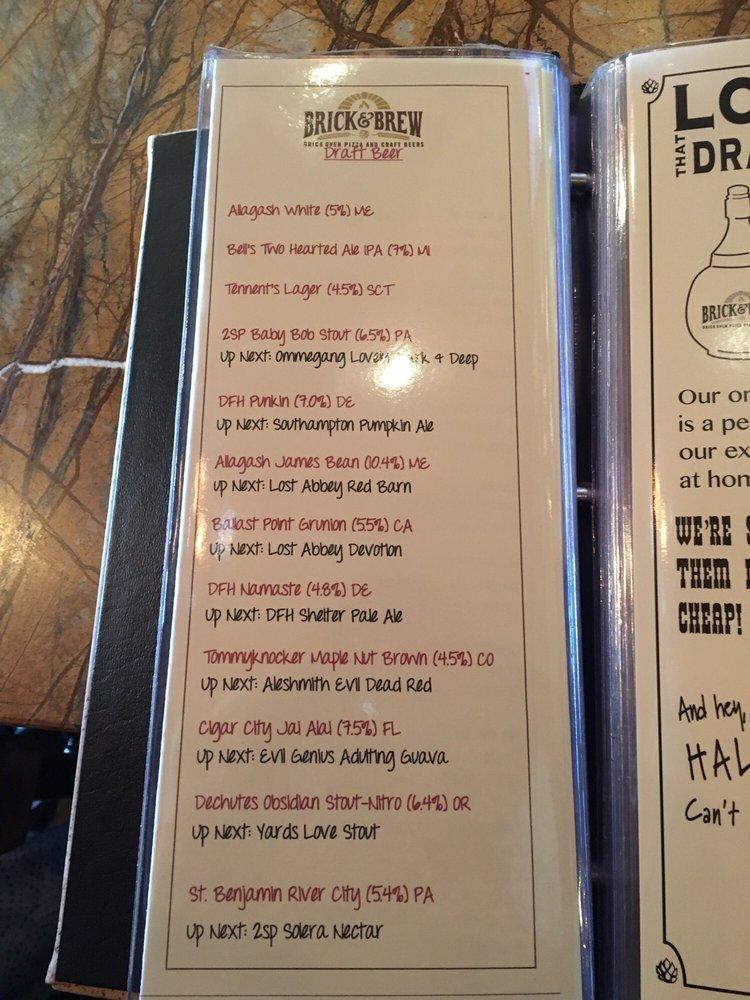 BRICK & BREW
BRICK OVEN PIZZA AND CRAFT BEERS
Draft Beer
Allagash White (5%) ME
Bell's Two Hearted Ale IPA (7%) MI
Tennent's Lager (4.5%) SCT
2SP Baby Bob Stout (6.5%) PA
Up Next: Ommegang & Deep
DFH Punkin (7.0%) DE
Up Next: Southampton Pumpkin Ale
Allagash James Bean (10.4%) ME
Up Next: Lost Abbey Red Barn
Ballast Point Grunion (5.5%) CA
Up Next: Lost Abbey Devotion
DFH Namaste (4.8%) DE
Up Next: DFH Shelter Pale Ale
Tommyknocker Maple Nut Brown (4.5%) CO
Up Next: Aleshmith Evil Dead Red
Cigar City Jai Alai (7.5%) FL
Up Next: Evil Genius Adulting Guava
Dechutes Obsidian Stout-Nitro (6.4%) OR
Up Next: Yards Love Stout
St. Benjamin River City (5.4%) PA
Up Next: 2sp Solera Nectar
LO
THAT DRA
BRICK &
Our or
is a pe
our ex
at hom
WE'RE S
THEM
CHEAP!
And hey,
HAL
Can't